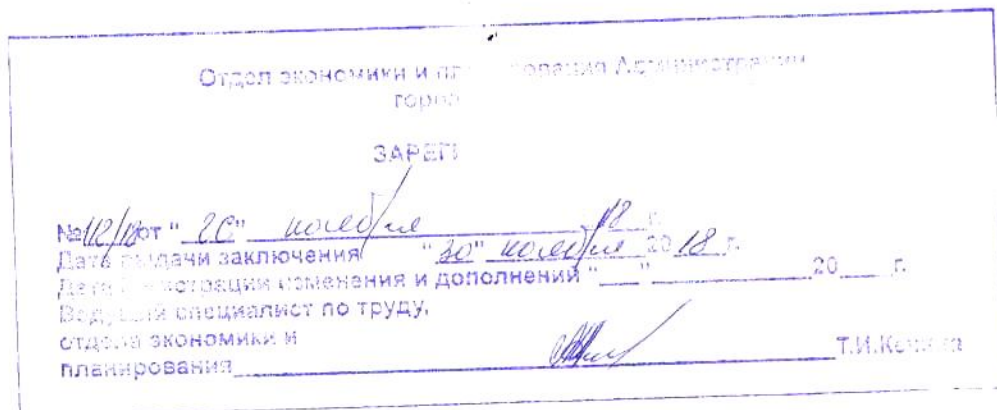 Отдел экономики и планирования Администрации
города
ЗАРЕГИ
№112/18 от " " ноября 18 г.
Дата выдачи заключения "30" ноября 2018 г.
Дата регистрации изменения и дополнений "___" 20___ г.
Ведущий специалист по труду,
отдела экономики и
планирования Т.И.